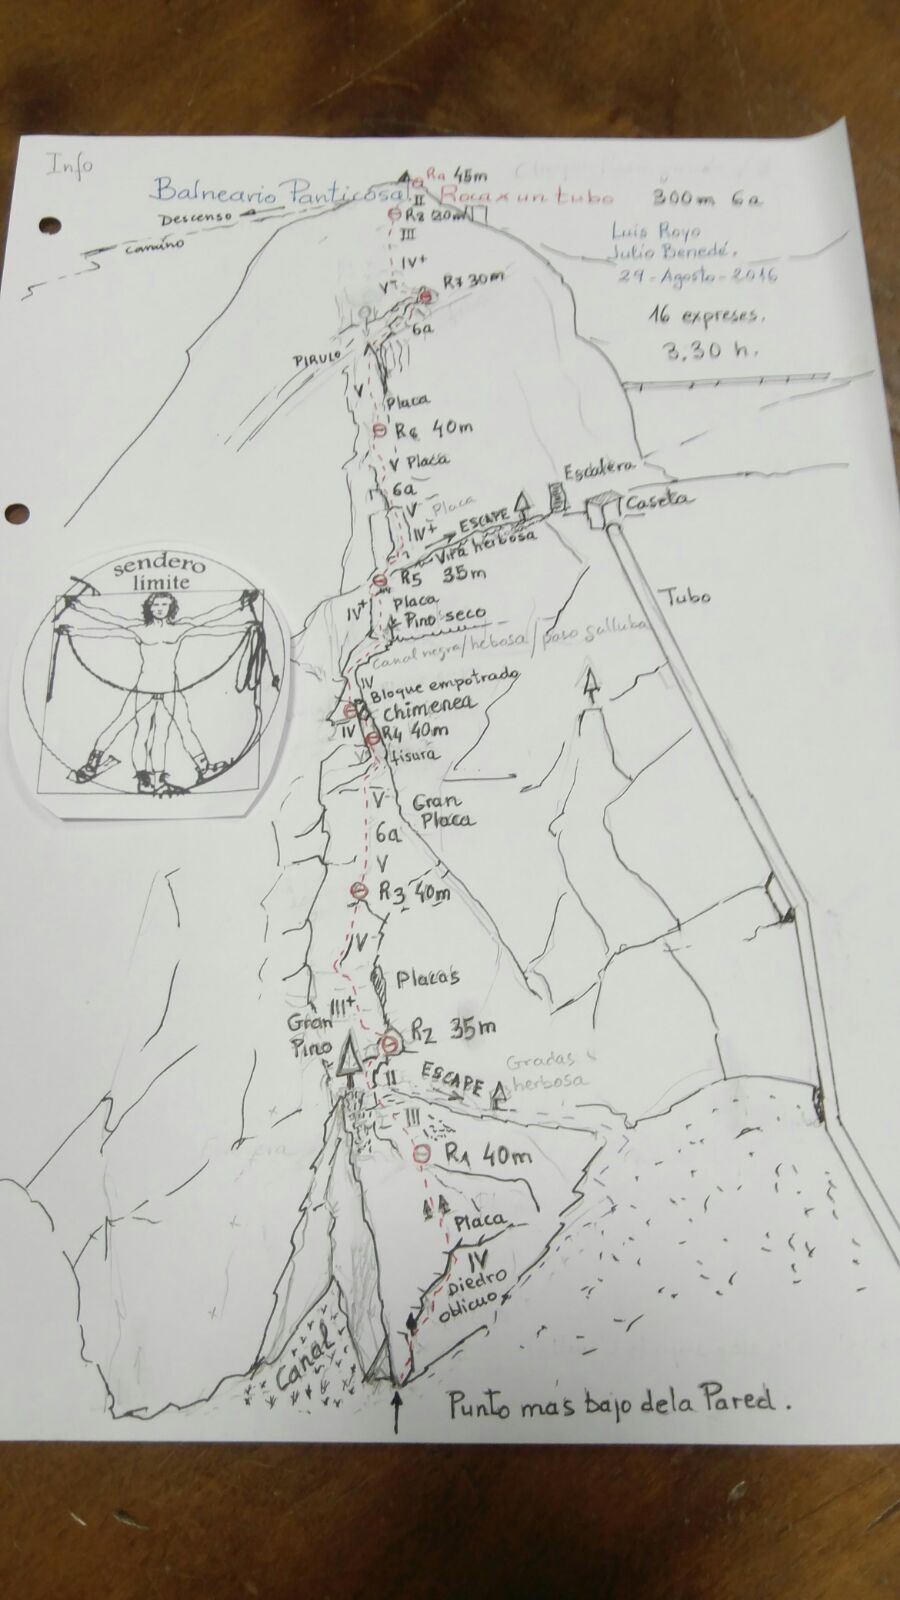 Info
Ra 45m
Balneario Panticosa. Roca x un tubo 300m 6a
II
Descenso
R8 (20m)
III
Camino
Luis Royo
Julio Benedé.
29-Agosto-2016
IV+
V+
R7 30m
16 expreses.
6a
3,30 h.
PIRULO
V
Placa
R6 40m
V Placa
6a
V Placa
IV+
ESCAPE
Vira herbosa
Escalera
Caseta
R5 35m
Placa
IV+
Pino seco
Tubo
Canal negra/hebosa/paso galluba
IV
Bloque empotrado
Chimenea
IV
R4 40m
V
fisura
V
Gran
Placa
6a
V
R3 40m
IV
Placas
III+
Gran
Pino
R2 35m
II
ESCAPE
Gradas
herbosa
III
R1 40m
Placa
IV
Diedro
oblicuo
Canal
Punto mas bajo dela Pared.
sendero
límite